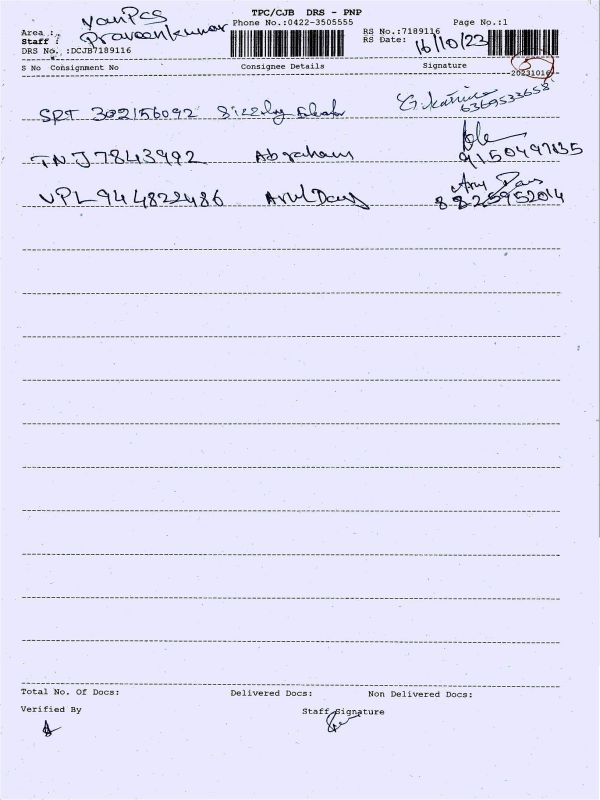 TPC/CJB DRS - PNP
Area : VanPcs Phone No.:0422-3505555 Page No.:1
Staff : Praveenkumar RS No.:7189116
DRS No. :DCJB7189116 RS Date: 16/10/23
S No Consignment No Consignee Details Signature 5
20231016
SRT 302156092 G. Karthick
6369533658
TNJ7843992 Abraham 9150497135
VPL944822486 Arul Dass Arul Dass
8825952014
Total No. Of Docs: Delivered Docs: Non Delivered Docs:
Verified By Staff Signature